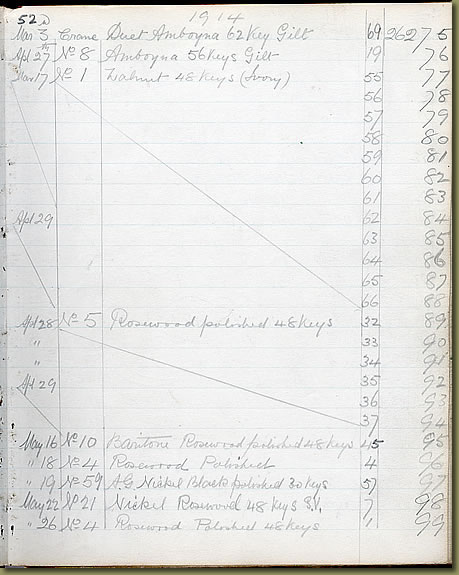 52 1914
Mar 3 Crane Duet Amboyna 62 Key Gilt 69 26275
Apl 27th No 8 Amboyna 56 Keys Gilt 19 76
Mar 17 No 1 Walnut 48 Keys (Ivory) 55 77
56 78
57 79
58 80
59 81
60 82
61 83
Apl 29 62 84
63 85
64 86
65 87
66 88
Apl 28 No 5 Rosewood polished 48 Keys 32 89
" 33 90
" 34 91
Apl 29 35 92
36 93
37 94
May 16 No 10 Baritone Rosewood polished 48 Keys 45 95
" 18 No 4 Rosewood Polished 4 96
" 19 No 59 A.G. Nickel Black polished 30 Keys 57 97
May 22 No 21 Nickel Rosewood 48 Keys S.V. 7 98
" 26 No 4 Rosewood Polished 48 Keys 1 99